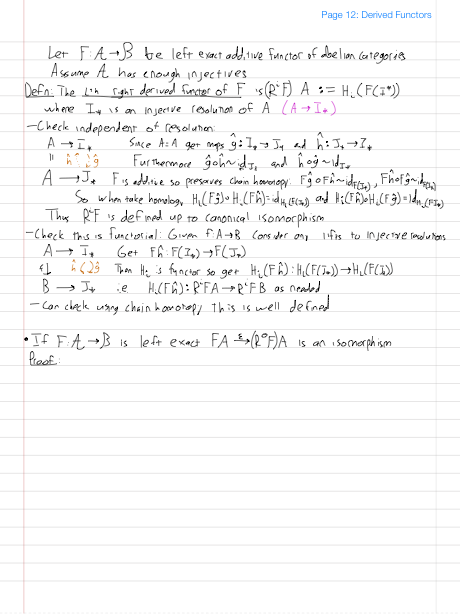 Page 12: Derived Functors
Let F: A → B be left exact additive functor of abelian categories
Assume A has enough injectives
Defn: The i-th right derived functor of F is (RⁱF) A := Hᵢ(F(I*))
where I* is an injective resolution of A (A → I*)
- Check independent of resolution:
A → I* Since A=A get maps ĝ: I* → J* and ĥ: J* → I*
" ĥ ↑ ↓ ĝ Furthermore ĝ∘ĥ ~ id_J* and ĥ∘ĝ ~ id_I*
A → J* F is additive so preserves chain homotopy: Fĝ∘Fĥ ~ id_F(J*), Fĥ∘Fĝ ~ id_F(I*)
So when take homology, Hᵢ(Fĝ)∘Hᵢ(Fĥ) = id_Hᵢ(F(J*)) and Hᵢ(Fĥ)∘Hᵢ(Fĝ) = id_Hᵢ(F(I*))
Thus RⁱF is defined up to canonical isomorphism
- Check this is functorial: Given f: A → B Consider any lifts to injective resolutions
A → I* Get Fĥ: F(I*) → F(J*)
f↓ ĥ ĝ Then Hᵢ is functor so get Hᵢ(Fĥ): Hᵢ(F(I*)) → Hᵢ(F(J*))
B → J* i.e. Hᵢ(Fĥ): RⁱFA → RⁱFB as needed
- Can check using chain homotopy this is well defined
• If F: A → B is left exact FA →ε (R⁰F)A is an isomorphism
Proof: